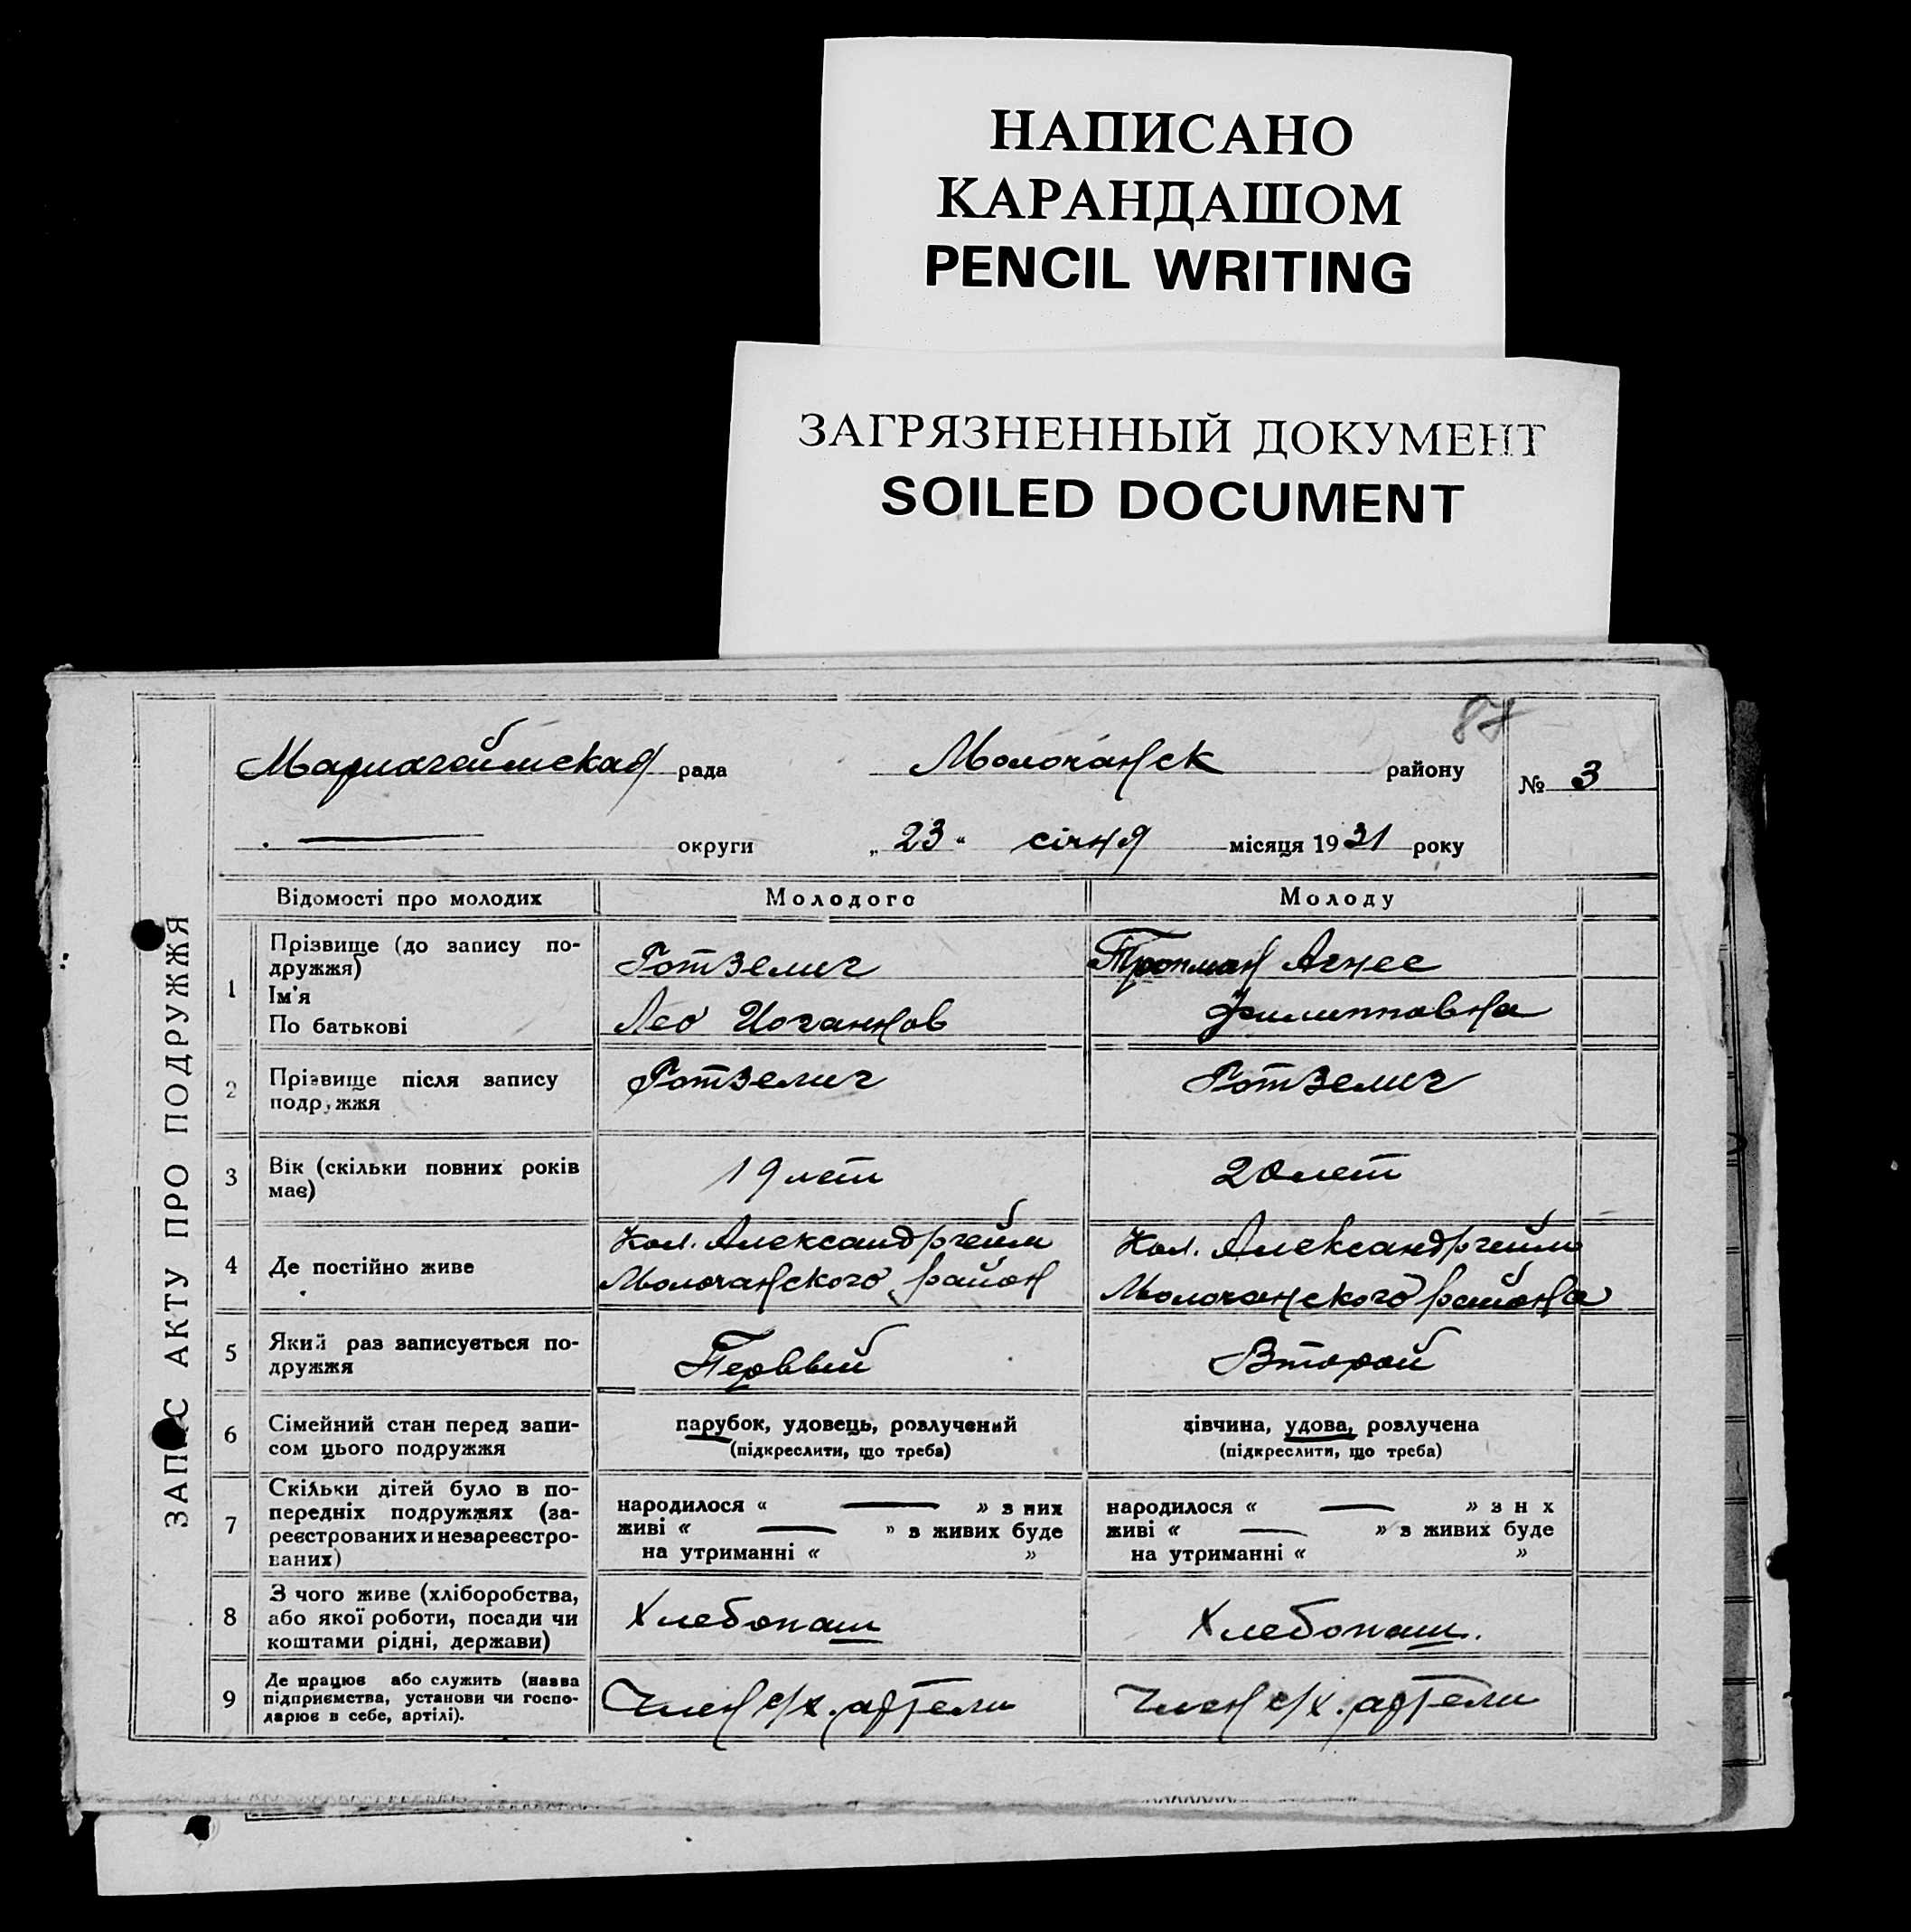 НАПИСАНО
КАРАНДАШОМ
PENCIL WRITING
ЗАГРЯЗНЕННЫЙ ДОКУМЕНТ
SOILED DOCUMENT
87
Мариагеймская рада Молочанск району № 3
округи „ 23 “ січня місяця 1931 року
ЗАПИС АКТУ ПРО ПОДРУЖЖЯ
Відомості про молодих Молодого Молоду
1 Прізвище (до запису по-
дружжя) Ротзелиг Тропман Агнес
Ім'я
По батькові Лео Иоганнов Филипповна
2 Прізвище після запису Ротзелиг Ротзелиг
подружжя
3 Вік (скільки повних років 19 лет 20 лет
має)
4 Де постійно живе Кол. Александргейм Кол. Александргейм
Молочанского район Молочанского района
5 Який раз записується по- Первый Второй
дружжя
6 Сімейний стан перед запи- парубок, удовець, розлучений дівчина, удова, розлучена
сом цього подружжя (підкреслити, що треба) (підкреслити, що треба)
7 Скільки дітей було в по-
передніх подружжях (за- народилося « — » з них народилося « — » з н х
реєстрованих и незареєстро- живі « — » в живих буде живі « — » в живих буде
ваних) на утриманні « » на утриманні « »
8 З чого живе (хліборобства,
або якої роботи, посади чи Хлебопаш Хлебопаш.
коштами рідні, держави)
9 Де працює або служить (назва
підприємства, установи чи госпо- Член с/х. артели Член с/х. артели
дарює в себе, артілі).